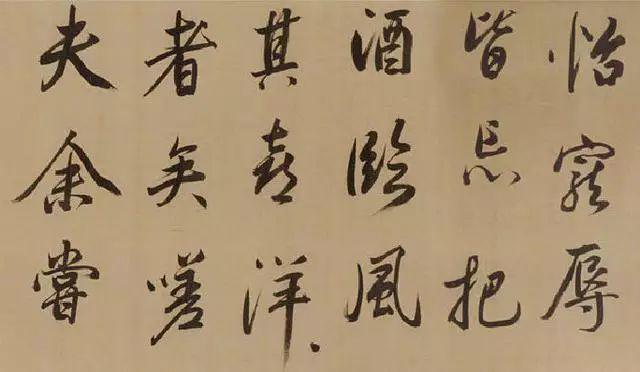 怡寵辱
皆忘把
酒臨風
其喜洋、
者矣嗟
夫余嘗